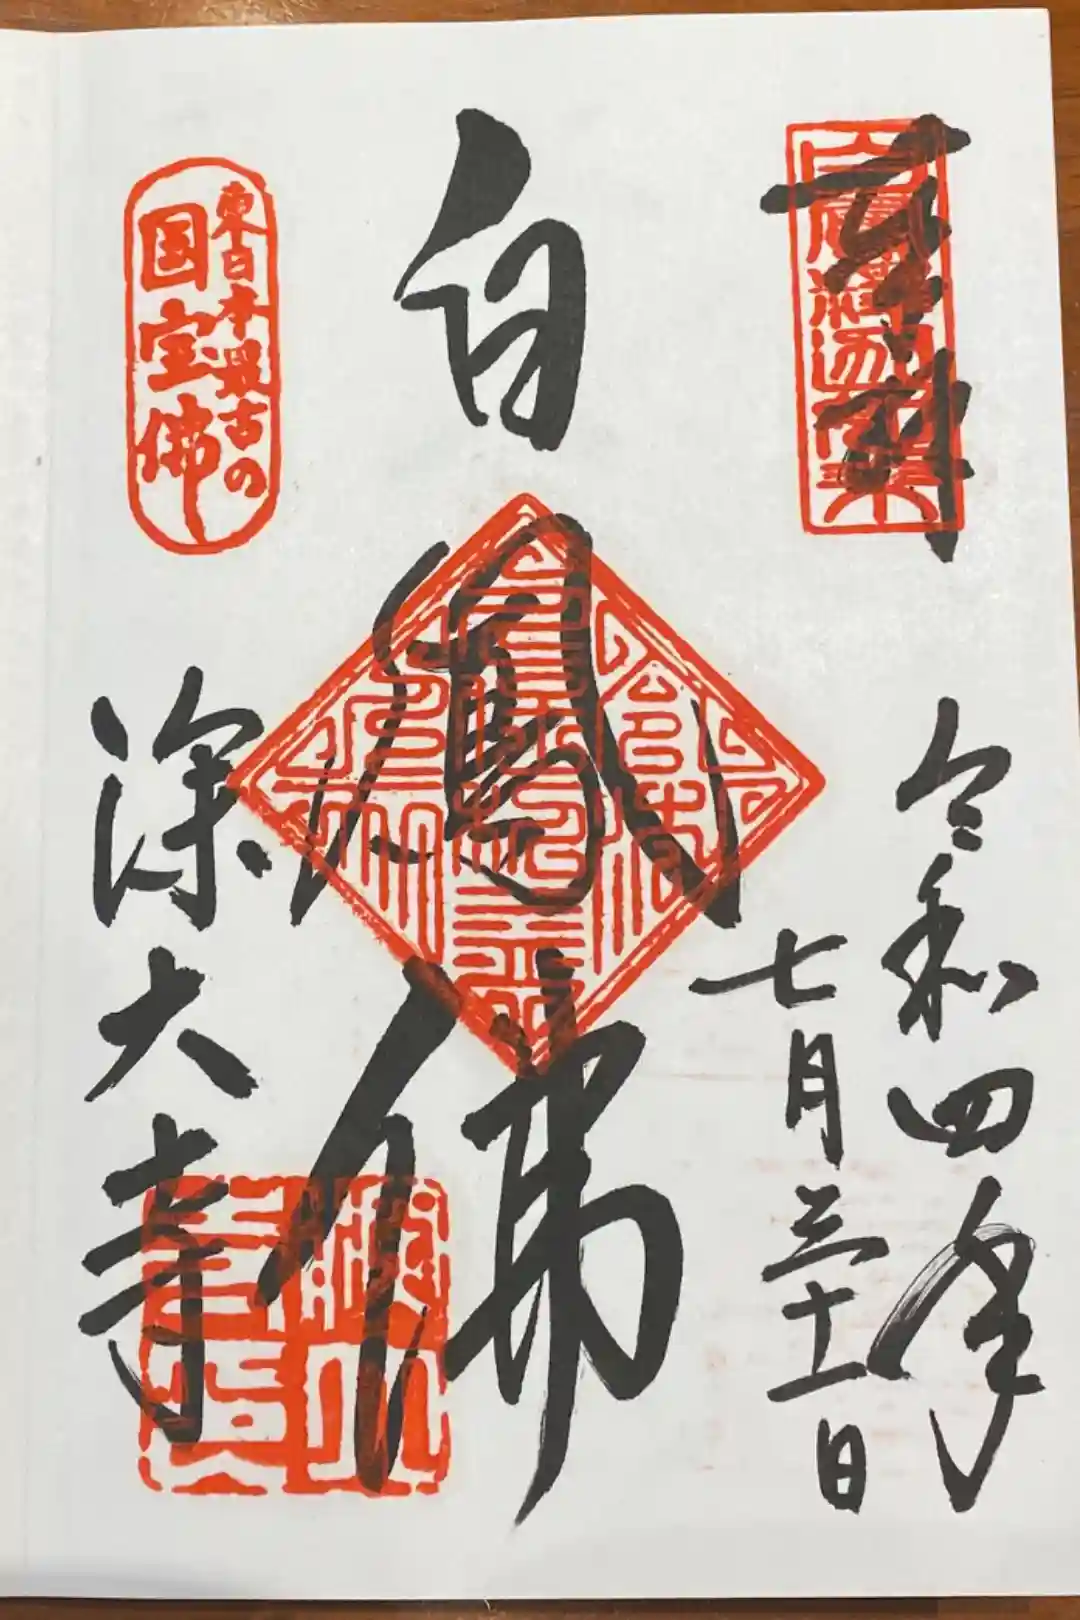 奉拝
令和四年
七月三十一日
白鳳佛
東日本最古の
国宝佛
深大寺